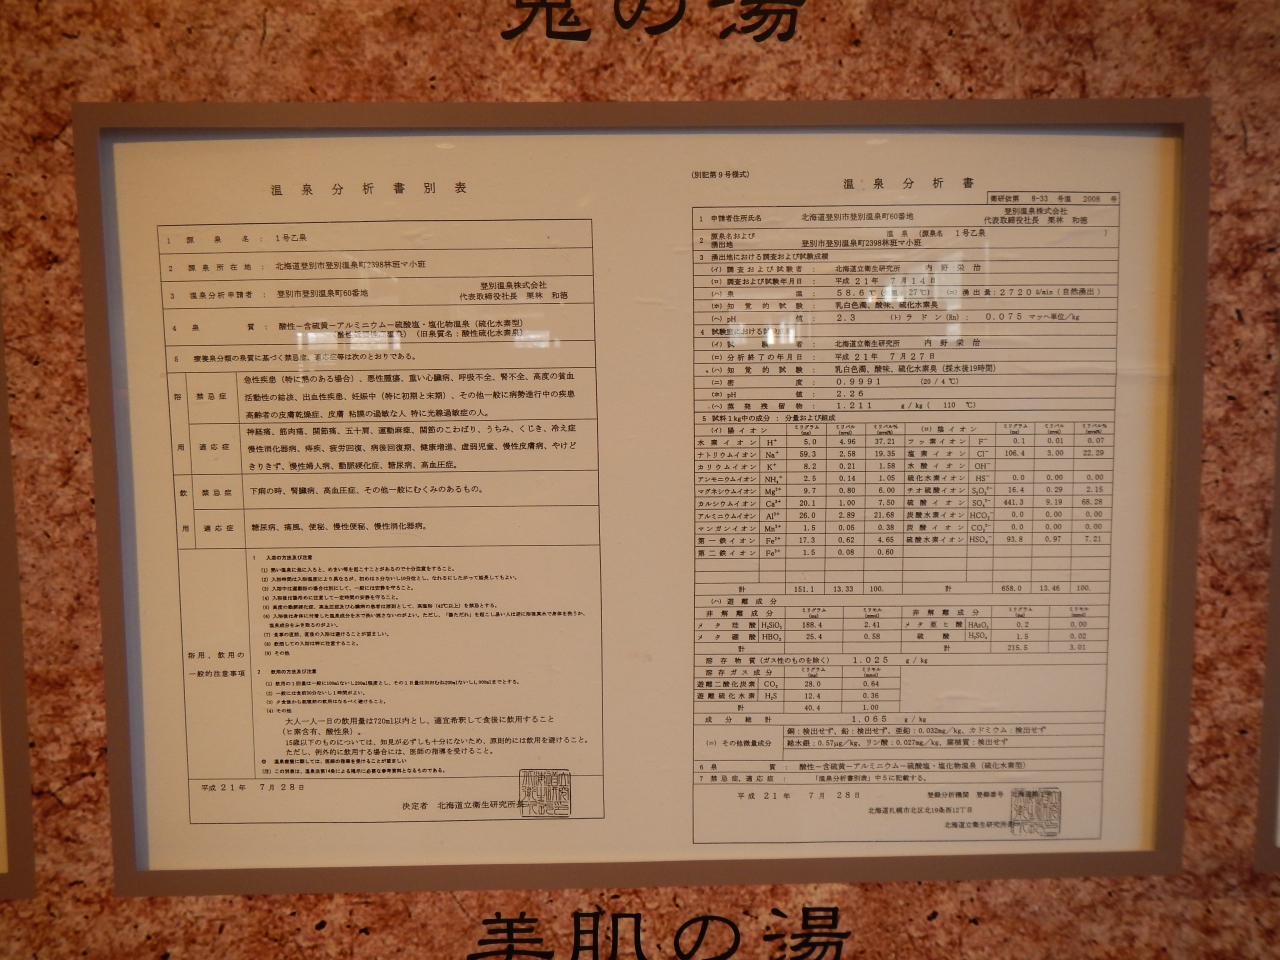 鬼の湯
温泉分析書別表
1 源泉名 : 1号乙泉
2 源泉所在地 : 北海道登別市登別温泉町2398林班マ小班
3 温泉分析申請者 : 登別市登別温泉町60番地
登別温泉株式会社
代表取締役社長 栗林 和徳
4 泉質 : 酸性-含硫黄-アルミニウム-硫酸塩・塩化物温泉(硫化水素型)
(旧泉質名:酸性硫化水素泉)
5 療養泉分類の泉質に基づく禁忌症、適応症等は次のとおりである。
浴用
禁忌症
急性疾患(特に熱のある場合)、悪性腫瘍、重い心臓病、呼吸不全、腎不全、高度の貧血
活動性の結核、出血性疾患、妊娠中(特に初期と末期)、その他一般に病勢進行中の疾患
高齢者の皮膚乾燥症、皮膚 粘膜の過敏な人 特に光線過敏症の人。
適応症
神経痛、筋肉痛、関節痛、五十肩、運動麻痺、関節のこわばり、うちみ、くじき、冷え症
慢性消化器病、痔疾、疲労回復、病後回復期、健康増進、虚弱児童、慢性皮膚病、やけど
きりきず、慢性婦人病、動脈硬化症、糖尿病、高血圧症。
飲用
禁忌症 下痢の時、腎臓病、高血圧症、その他一般にむくみのあるもの。
適応症 糖尿病、痛風、便秘、慢性便秘、慢性消化器病。
浴用、飲用の
一般的注意事項
1 入浴の方法及び注意
(7) 食事の直前、直後の入浴は避けることが望ましい。
(8) 飲酒しての入浴は特に注意すること。
(9) その他
2 飲用の方法及び注意
(4) その他
大人一人一日の飲用量は720ml以内とし、適宜希釈して食後に飲用すること
(ヒ素含有、酸性泉)。
15歳以下のものについては、知見が必ずしも十分にないため、原則的には飲用を避けること。
ただし、例外的に飲用する場合には、医師の指導を受けること。
平成 21年 7月 28日
決定者 北海道立衛生研究所長
(別記第9号様式)
温泉分析書
衛研依第 8-33 号温 2008 号
1 申請者住所氏名 北海道登別市登別温泉町60番地
登別温泉株式会社
代表取締役社長 栗林 和徳
2 源泉名および湧出地 温泉 (源泉名 1号乙泉 )
登別市登別温泉町2398林班マ小班
3 湧出地における調査および試験成績
(イ) 調査および試験者 : 北海道立衛生研究所 内野 栄治
(ロ) 調査および試験年月日 : 平成 21年 7月14日
(ハ) 泉温 : 58.6℃ (気温 27℃) (ニ) 湧出量:2720 ℓ/min (自然湧出)
(ホ) 知覚的試験 : 乳白色濁、酸味、硫化水素臭
(ヘ) pH値 : 2.3 (ト) ラドン (Rn) : 0.075 マッヘ単位/kg
4 試験室における試験成績
(イ) 試験者 : 北海道立衛生研究所 内野 栄治
(ロ) 分析終了の年月日 : 平成 21年 7月27日
(ハ) 知覚的試験 : 乳白色濁、酸味、硫化水素臭 (採水後19時間)
(ニ) 密度 : 0.9991 (20/4℃)
(ホ) pH値 : 2.26
(ヘ) 蒸発残留物 : 1.211 g/kg ( 110 ℃)
5 試料1kg中の成分 : 分量および組成
(イ) 陽イオン ミリグラム (mg) ミリバル (mval) ミリバル% (mval%) (ロ) 陰イオン ミリグラム (mg) ミリバル (mval) ミリバル% (mval%)
水素イオン H⁺ 5.0 4.96 37.21 フッ素イオン F⁻ 0.1 0.01 0.07
ナトリウムイオン Na⁺ 59.3 2.58 19.35 塩素イオン Cl⁻ 106.4 3.00 22.29
カリウムイオン K⁺ 8.2 0.21 1.58 水酸イオン OH⁻
アンモニウムイオン NH₄⁺ 2.5 0.14 1.05 硫化水素イオン HS⁻ 0.0 0.00 0.00
マグネシウムイオン Mg²⁺ 9.7 0.80 6.00 チオ硫酸イオン S₂O₃²⁻ 16.4 0.29 2.15
カルシウムイオン Ca²⁺ 20.1 1.00 7.50 硫酸イオン SO₄²⁻ 441.3 9.19 68.28
アルミニウムイオン Al³⁺ 26.0 2.89 21.68 炭酸水素イオン HCO₃⁻ 0.0 0.00 0.00
マンガンイオン Mn²⁺ 1.5 0.05 0.38 炭酸イオン CO₃²⁻ 0.0 0.00 0.00
第一鉄イオン Fe²⁺ 17.3 0.62 4.65 硫酸水素イオン HSO₄⁻ 93.8 0.97 7.21
第二鉄イオン Fe³⁺ 1.5 0.08 0.60
計 151.1 13.33 100. 計 658.0 13.46 100.
(ハ) 遊離成分
非解離成分 ミリグラム (mg) ミリモル (mmol) 非解離成分 ミリグラム (mg) ミリモル (mmol)
メタ珪酸 H₂SiO₃ 188.4 2.41 メタ亜ヒ酸 HAsO₂ 0.2 0.00
メタ硼酸 HBO₂ 25.4 0.58 硫酸 H₂SO₄ 1.5 0.02
計 215.5 3.01
溶存物質 (ガス性のものを除く) 1.025 g/kg
溶存ガス成分 ミリグラム (mg) ミリモル (mmol)
遊離二酸化炭素 CO₂ 28.0 0.64
遊離硫化水素 H₂S 12.4 0.36
計 40.4 1.00
成分総計 1.065 g/kg
(ニ) その他微量成分 銅:検出せず、鉛:検出せず、亜鉛:0.032mg/kg、カドミウム:検出せず
総水銀:0.57μg/kg、リン酸:0.027mg/kg、腐植質:検出せず
6 泉質 : 酸性-含硫黄-アルミニウム-硫酸塩・塩化物温泉(硫化水素型)
7 禁忌症、適応症 : 「温泉分析書別表」中5に記載する。
平成 21年 7月 28日 登録分析機関 登録番号
北海道札幌市北区北19条西12丁目
北海道立衛生研究所長
美肌の湯